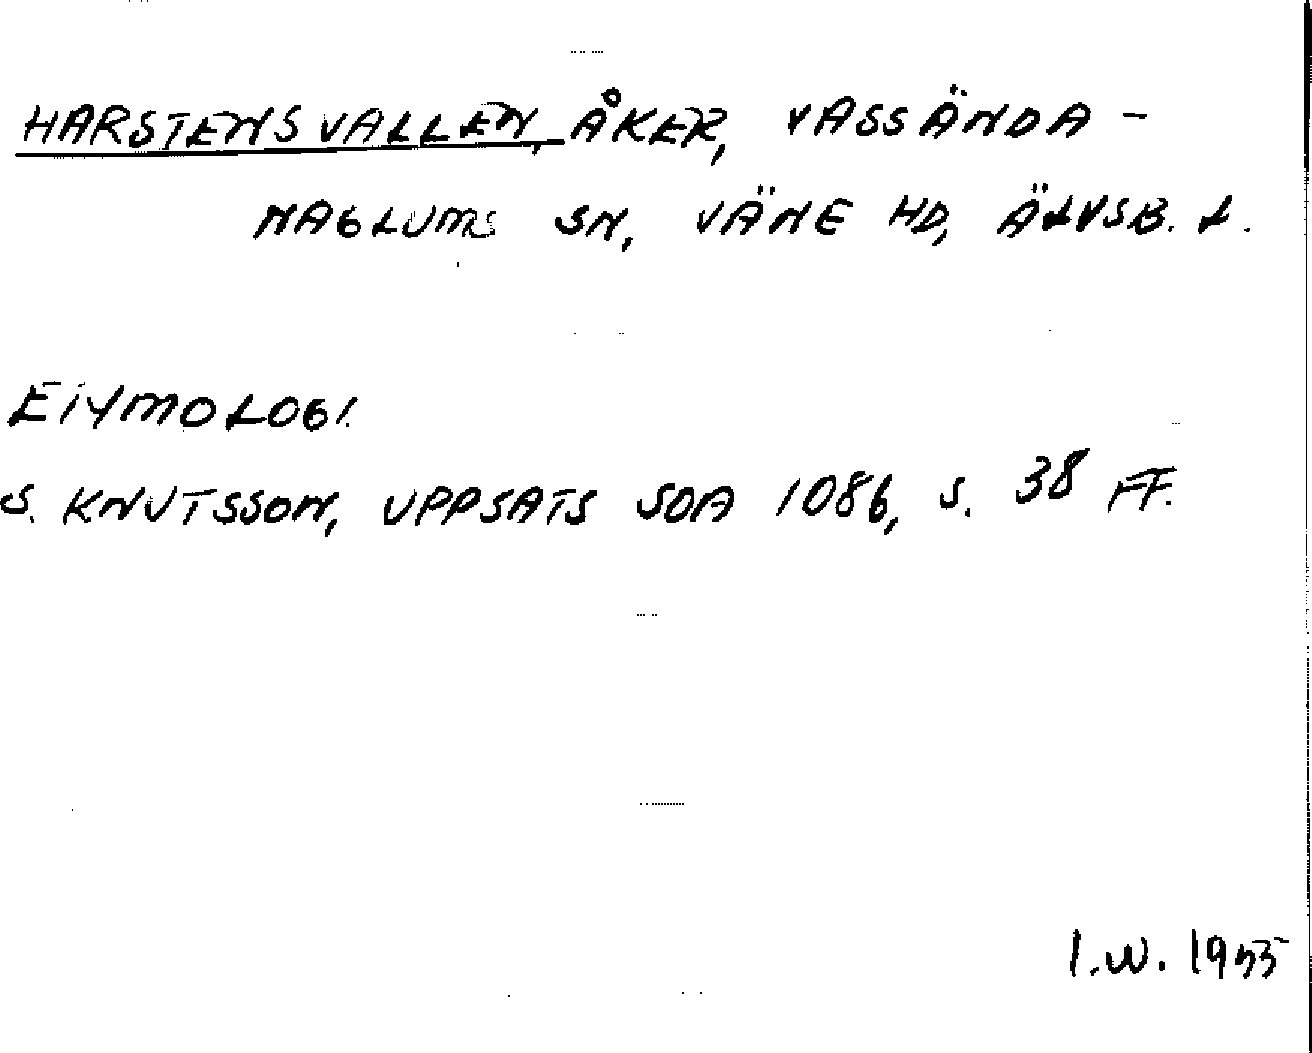 HARSTENSVALLEN, ÅKER, VASSÄNDA -
NAGLUMS SN, VÄNE HD, ÄLVSB. L.
ETYMOLOGI.
S. KNUTSSON, UPPSATS SOA 1086, S. 38 FF.
I.W. 1955